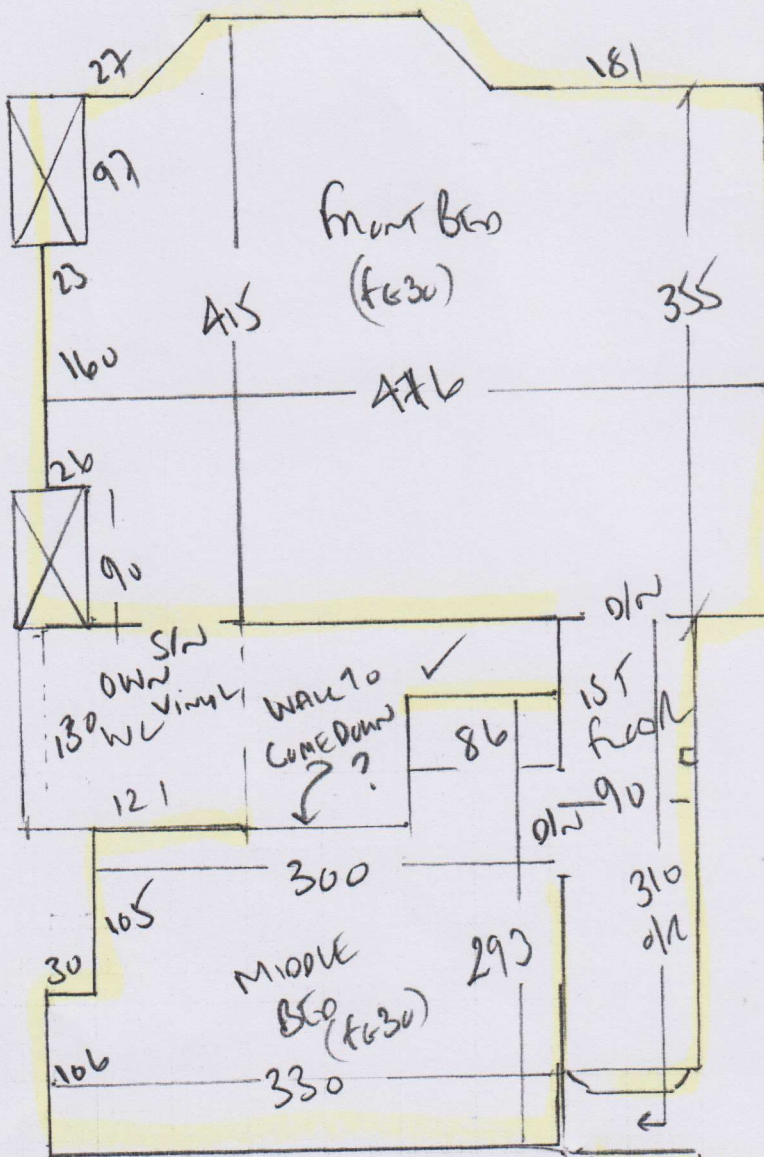 27
181
97
FRONT BED
(FG30)
23
415
355
160
476
26
90
D/N
S/N
OWN
VINYL
130 WC
WALL TO
COME DOWN
?
86
1ST
FLOOR
121
D/N
90
300
310
105
293
30
MIDDLE
BED (FG30)
106
330